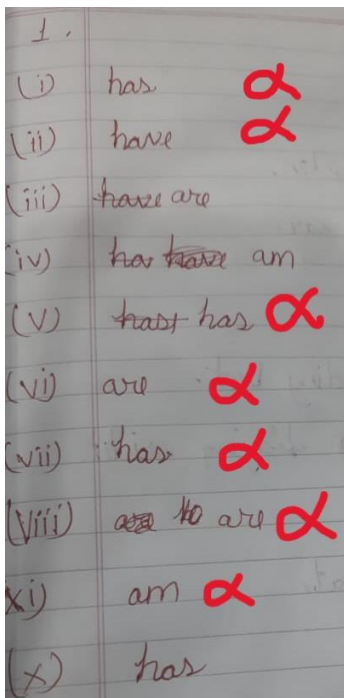 1.
(i) has α
(ii) have α
(iii) have are
(iv) ha have am
(v) hast has α
(vi) are α
(vii) has α
(viii) are α
xi) am α
(x) has